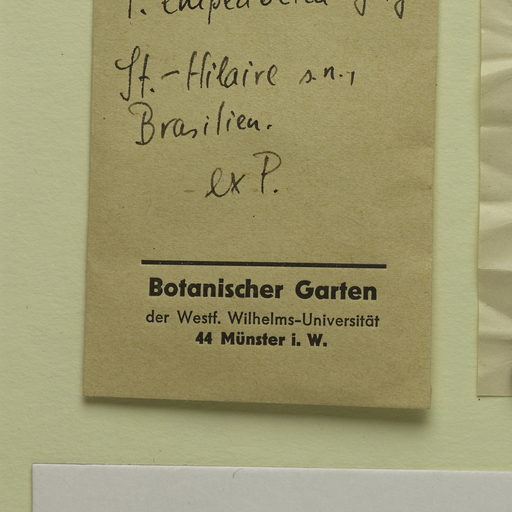 St.-Hilaire s.n.,
Brasilien.
ex P.
Botanischer Garten
der Westf. Wilhelms-Universität
44 Münster i. W.